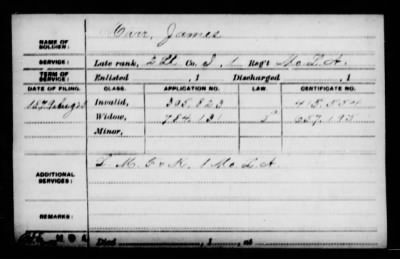 NAME OF SOLDIER: Carr, James
SERVICE: Late rank, 2 Lt Co. I, 1 Reg't Mo. L. A.
TERM OF SERVICE: Enlisted , 1 Discharged , 1
DATE OF FILING. CLASS. APPLICATION NO. LAW. CERTIFICATE NO.
1879 Aug Invalid, 305.823
Widow, 784.131 657.193
Minor,
ADDITIONAL SERVICES: I M. & K. 1 Mo. L A.
REMARKS:
Died , 1 , at